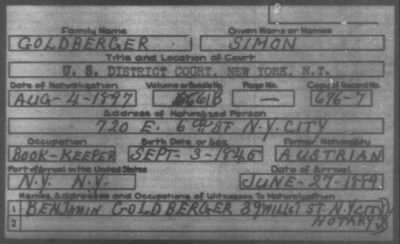 Family Name Given Name or Names
GOLDBERGER SIMON
Title and Location of Court
U. S. DISTRICT COURT, NEW YORK, N.Y.
Date of Naturalization Volume or Bundle No. Page No. Copy of Record No.
AUG-4-1897 661B — 696-7
Address of Naturalized Person
720 E. 6 ST N.Y. CITY
Occupation Birth Date or Age Former Nationality
BOOK-KEEPER SEPT. 3-1845 AUSTRIAN
Port of Arrival in the United States Date of Arrival
N.Y. N.Y. JUNE-27-1889
Names, Addresses and Occupations of Witnesses To Naturalization
1 BENJAMIN GOLDBERGER 39 ST. N.Y. CITY
2 NOTARY